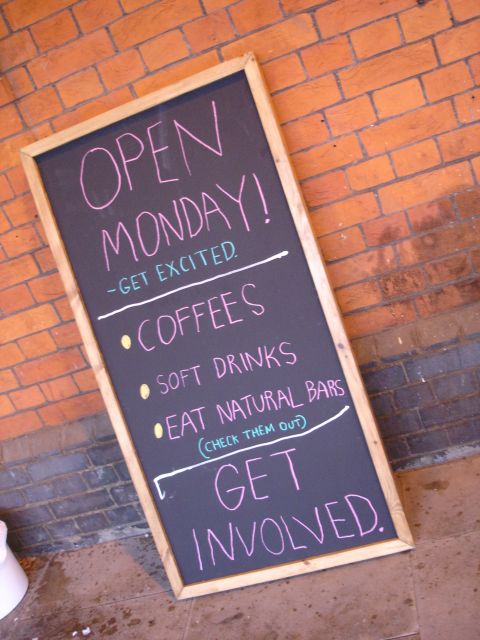 OPEN
MONDAY!
- GET EXCITED.
COFFEES
SOFT DRINKS
EAT NATURAL BARS
(CHECK THEM OUT)
GET
INVOLVED.